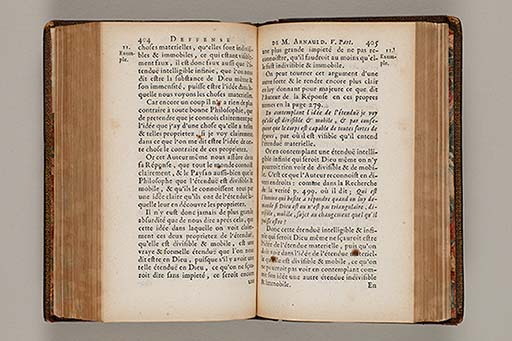 404 DEFFENSE
11.
Exem-
ple.
choses materielles, qu'elles sont indivisi-
bles & immobiles, ce qui estant visible-
ment faux, il est donc faux aussi que l'é-
tenduë intelligible infinie, que l'on nous
dit estre la substance de Dieu mesme &
son immensité, puisse estre l'idée dans la-
quelle nous voyons les choses materielles.
Car encore un coup il n'y a rien de plus
contraire à toute bonne Philosophie, que
de pretendre que je connois clairement par
l'idée que j'ay d'une chose qu'elle a telles
& telles proprietez, si je voy clairement
dans ce que l'on me dit estre l'idée de cet-
te chose le contraire de ces proprietez.
Or cet Auteur mesme nous assûre dans
sa Réponse, que tout le monde connoist
clairement, & le Paysan aussi-bien que le
Philosophe que l'étenduë est divisible &
mobile, & qu'ils le connoissent tous par
une idée claire qu'ils ont de l'étenduë la-
quelle leur en découvre les proprietez.
Il n'y eust donc jamais de plus grande
absurdité que de nous dire aprés cela, que
cette idée dans laquelle on voit claire-
ment ces deux proprietez de l'étenduë,
qu'elle est divisible & mobile, est une
vraye & formelle étenduë que l'on nous
dit estre en Dieu, puisque s'il y avoit une
telle étenduë en Dieu, ce qu'on ne sçau-
roit dire sans impieté, ce seroit encore
une
DE M. ARNAULD. V. Part. 405
11.
Exem-
ple.
une plus grande impieté de ne pas re-
connoître, qu'il faudroit au moins qu'el-
le fust indivisible & immobile.
On peut tourner cet argument d'une
autre sorte & le rendre encore plus clair
en luy donnant pour majeure ce que dit
l'Auteur de la Réponse en ces propres
termes en la page 279.
En contemplant l'idée de l'étenduë je voy
qu'elle est divisible & mobile, & par conse-
quent que le corps est capable de toutes sortes de
figures, par où il est visible qu'il entend
l'étenduë materielle.
Or en contemplant une étenduë intelli-
gible infinie qui seroit Dieu même on n'y
pourroit rien voir de divisible & de mobi-
le. C'est ce que l'Auteur reconnoist en di-
vers endroits: comme dans la Recherche
de la verité p. 499. où il dit; Qui est
l'homme qui hesite à répondre quand on luy de-
mande si Dieu est ou n'est pas triangulaire, di-
visible, mobile, sujet au changement quel qu'il
puisse estre?
Donc cette étenduë intelligible & infi-
nie qui seroit Dieu même ne sçauroit estre
l'idée de l'étenduë materielle, puis qu'on
doit voir dans l'idée de l'étenduë materiel-
le qu'elle est divisible & mobile, ce qu'on
ne pourroit pas voir en contemplant com-
me son idée une autre étenduë indivisible
& immobile.
En